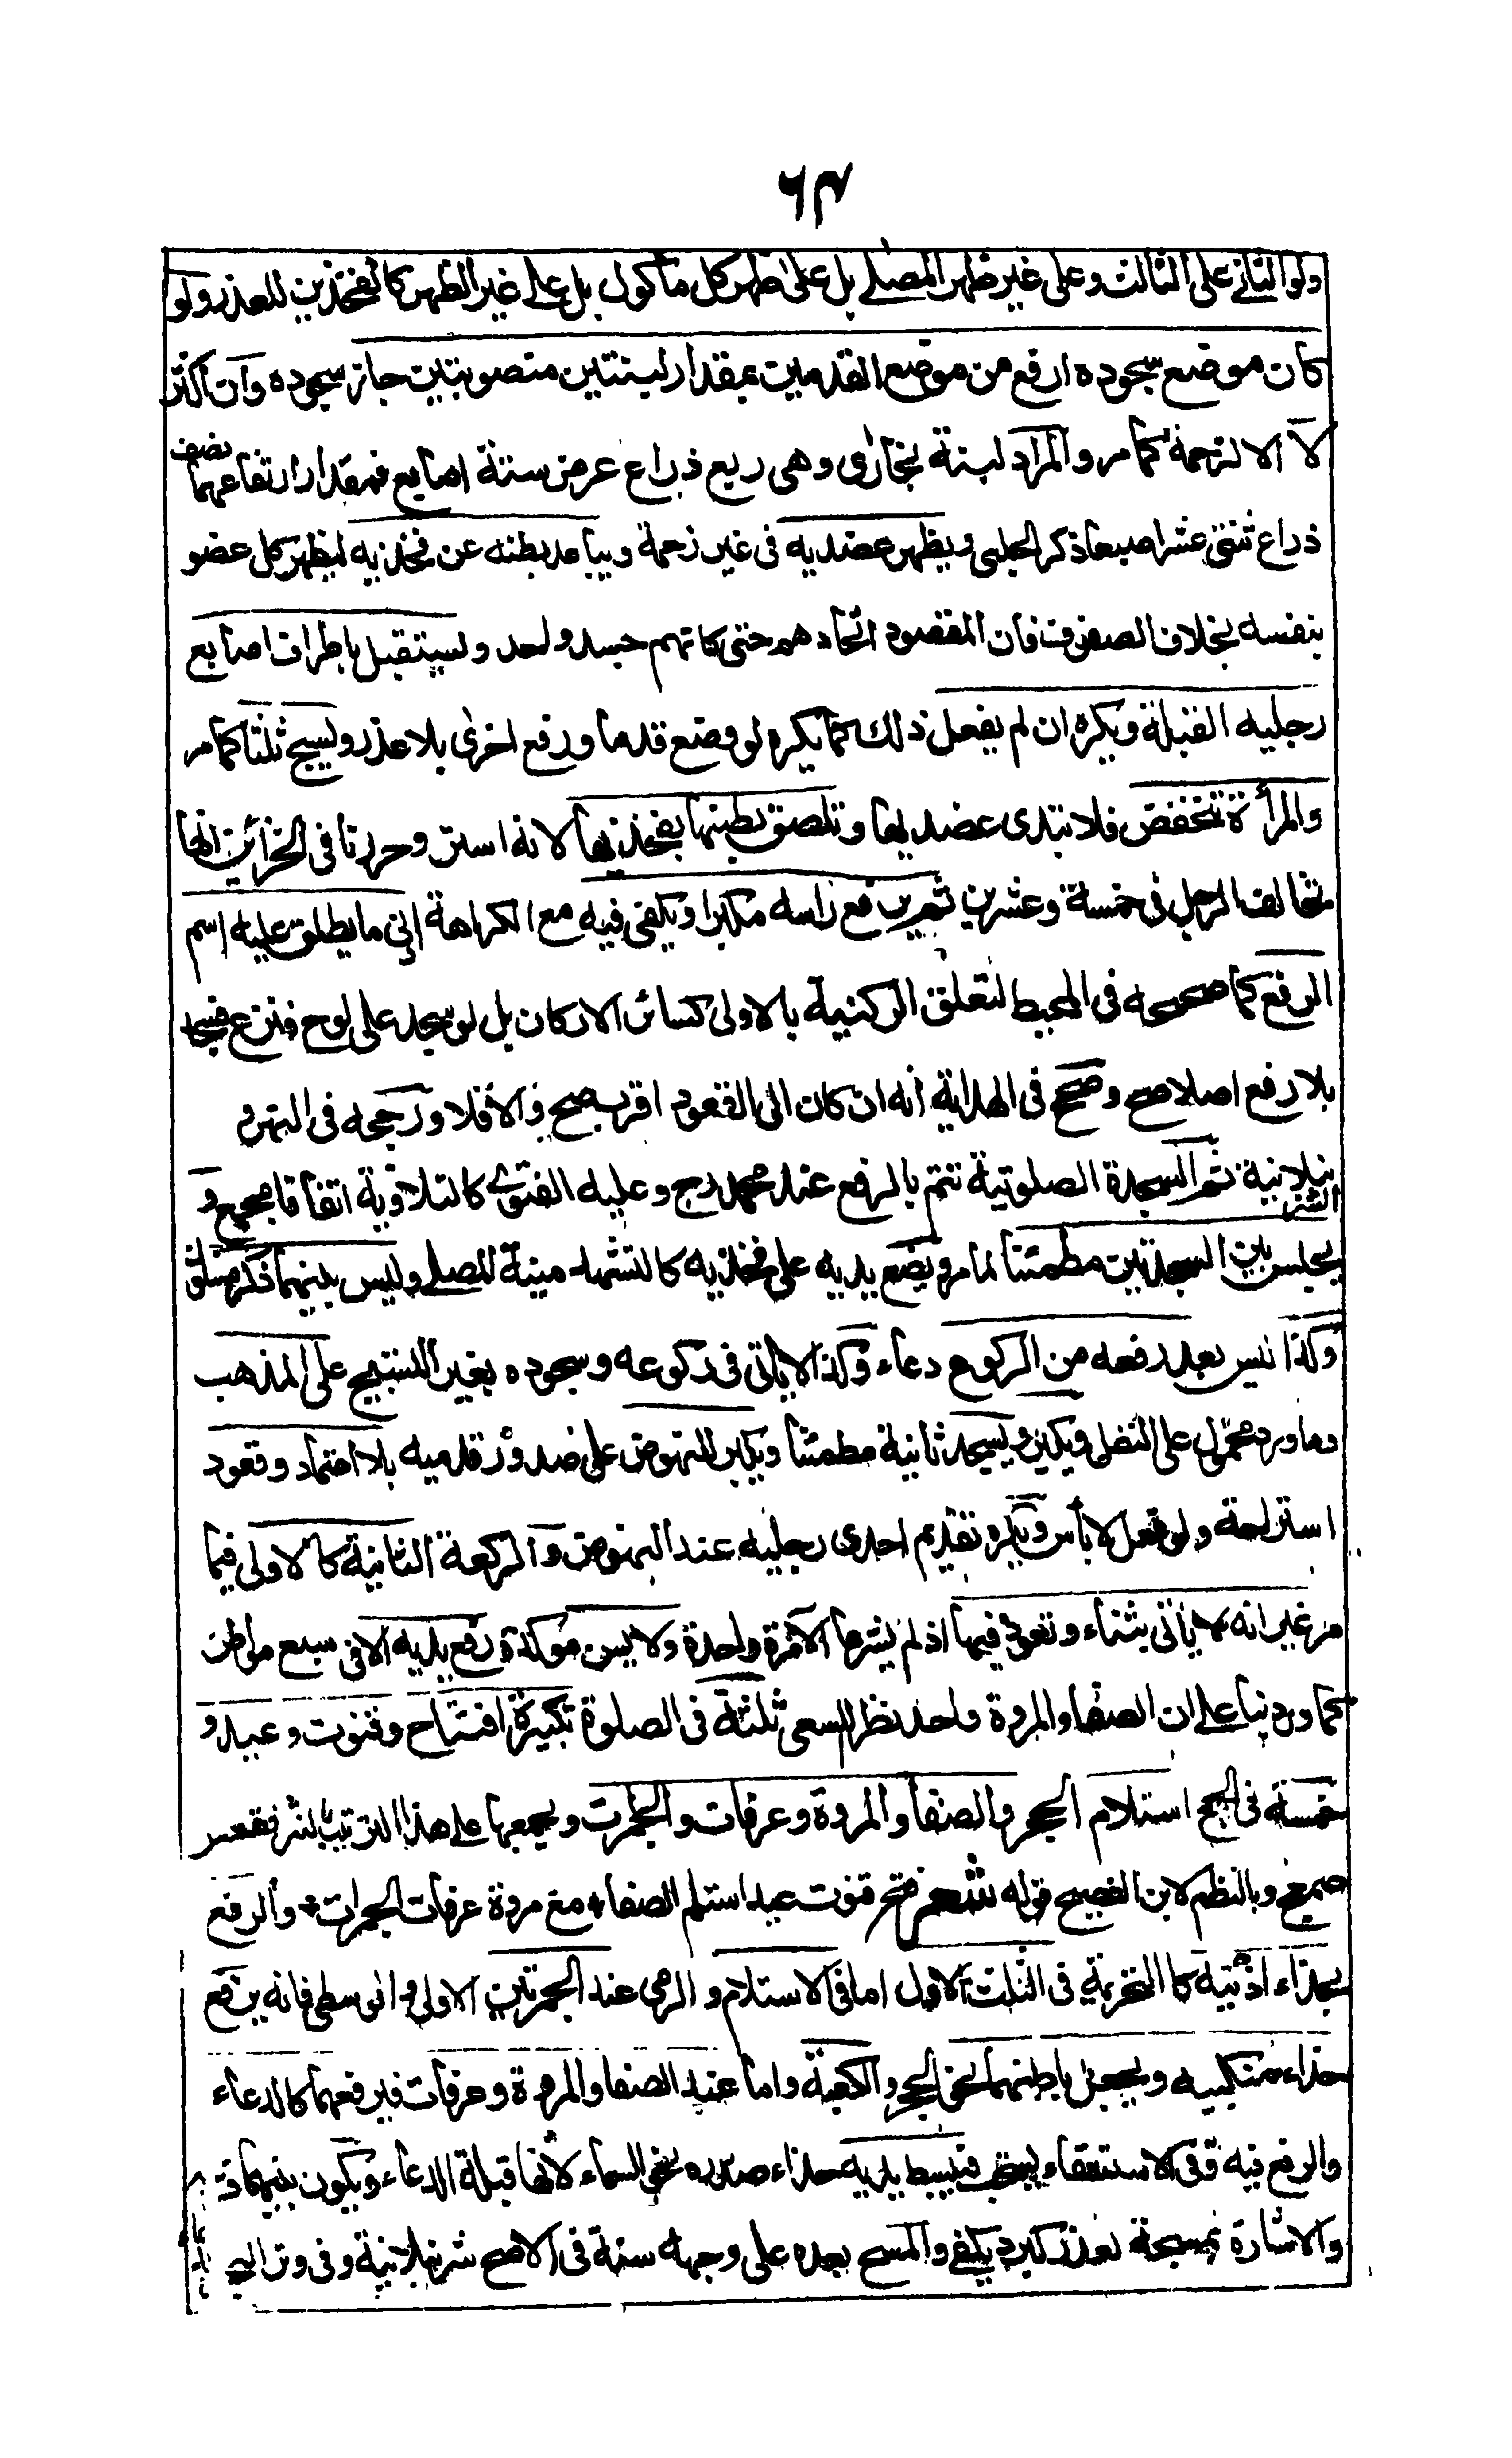 ٦٣
ولو الثاني على الثالث وعلى غير ظهر المصلے بل على ظهر كل ماكول بل علے غير الظهر كالفخذين للعذر ولو
كان موضع سجوده ارفع من موضع القدمين بمقدار لبنتين منصوبتين جاز سجوده وان اكثر
لا الا لزحمة كما مر والمراد لبنة بخارى وهى ربع ذراع عرض ستة اصابع فمقدار ارتفاعهما نصف
ذراع ثنتى عشر اصبعا ذكر الحلبى ويظهر عضديه فى غير زحمة ويباعد بطنه عن فخذيه ليظهر كل عضو
بنفسه بخلاف الصفوف فان المقصود اتحادهم حتى كانهم جسد واحد ويستقبل باطراف اصابع
رجليه القبلة ويكره ان لم يفعل ذلك كما يكره لو وضع قدما ورفع اخرى بلا عذر ويسبح ثلثا كما مر
والمرأة تنخفض فلا تبدى عضديها وتلصق بطنها بفخذيها لانه استر وحررنا فى الخزائن انها
تخالف الرجل فى خمسة وعشرين ثم يرفع راسه مكبرا ويكفى فيه مع الكراهة ادنى ما يطلق عليه اسم
الرفع كما صححه فى المحيط لتعلق الركنية بالادنى كسائر الاركان بل لو سجد على لوح فنزع فسجد
بلا رفع اصلا صح وصحح فى الهداية انه ان كان الى القعود اقرب صح والا فلا ورجحه فى النهر و
الشرنبلانية ثم السجدة الصلوتية تتم بالرفع عند محمد رح وعليه الفتوى كالتلاوية اتفاقا مجمع و
يجلس بين السجدتين مطمئنا لما مر ويضع يديه على فخذيه كالتشهد منية المصلے وليس بينهما ذكر مسنون
وكذا ليس بعد رفعه من الركوع دعاء وكذا لا ياتى فى ركوعه وسجوده بغير التسبيح على المذهب
وما ورد محمول على النفل ويكبر ويسجد ثانية مطمئنا ويكبر للنهوض على صدور قدميه بلا اعتماد وقعود
استراحة ولو فعل لا بأس ويكره تقديم احدى رجليه عند النهوض والركعة الثانية كالاولى فيما
مر غير انه لا يأتى بثناء وتعوذ فيها اذ لم يشرعا الا مرة واحدة ولا يسن مؤكدا رفع يديه الا فى سبع مواطن
كما ورد بناء على ان الصفا والمروة واحد نظر اللسعى ثلثة فى الصلوة تكبيرة افتتاح وقنوت وعيد و
خمسة فى الحج استلام الحجر والصفا والمروة وعرفات والجمرات ويجمعها على هذا الترتيب بالنثر فقعس
صمعج وبالنظم لابن الفصيح قوله شعر فتح قنوت عيد استلم الصفا * مع مروة عرفات الجمرات * والرفع
بحذاء اذنيه كالتحريمة فى الثلث الاول اما فى الاستلام والرمى عند الجمرتين الاولى والوسطى فانه يرفع
حذاء منكبيه ويجعل باطنهما نحو الحجر والكعبة واما عند الصفا والمروة وعرفات فيرفعهما كالدعاء
والرفع فيه وفى الاستسقاء يستحب فيبسط يديه حذاء صدره نحو السماء لانها قبلة الدعاء ويكون بينهما
والاشارة بمسبحة لعذر كبرد يكفى والمسح بعده على وجهه سنة فى الاصح شرنبلانية وفى وتر